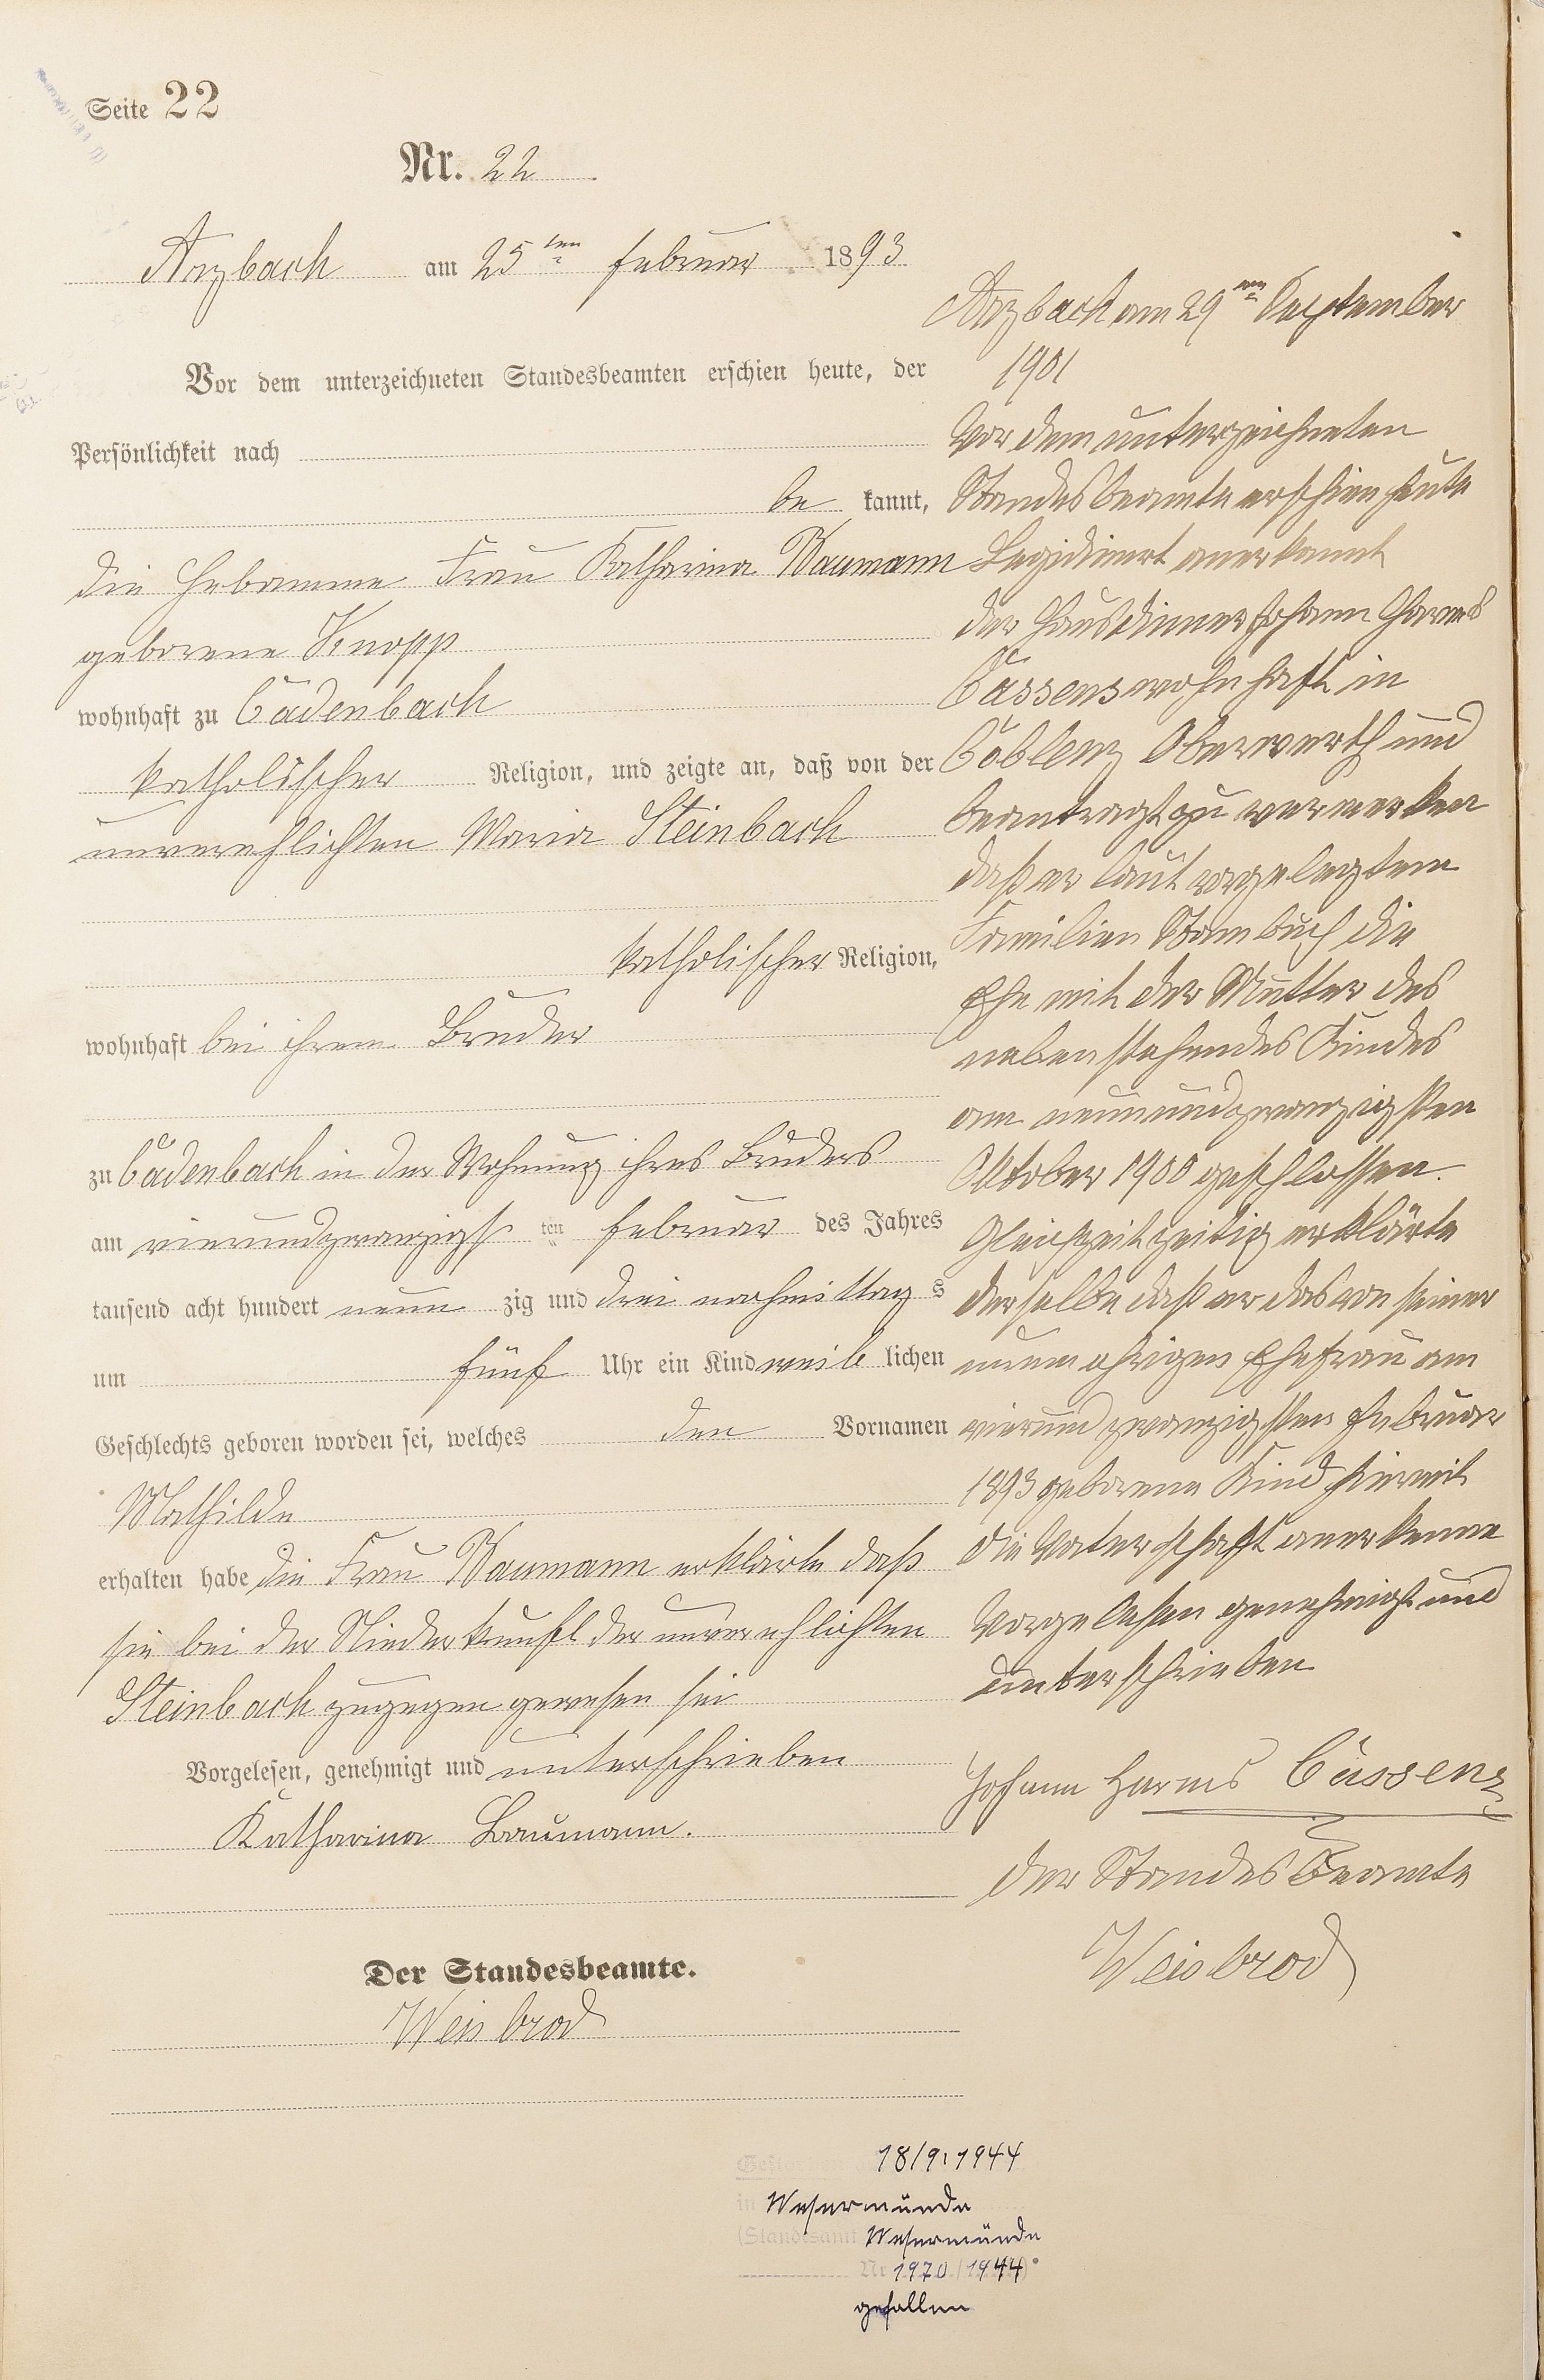 Seite 22
Nr. 22
Arzbach am 25ten Februar 1893
Vor dem unterzeichneten Standesbeamten erschien heute, der
Persönlichkeit nach
be kannt,
die Hebamme Frau Katharina Baumann
geborene Knopp
wohnhaft zu Cadenbach
katholischer Religion, und zeigte an, daß von der
unverehlichten Maria Steinbach
katholischer Religion,
wohnhaft bei ihrem Bruder
zu Cadenbach in der Wohnung ihres Bruders
am vierundzwanzigsten Februar des Jahres
tausend acht hundert neun zig und drei nachmittags
um fünf Uhr ein Kind weib lichen
Geschlechts geboren worden sei, welches den Vornamen
Mathilde
erhalten habe die Frau Baumann erklärte daß
sie bei der Niederkunft der unverehlichten
Steinbach zugegen gewesen sei
Vorgelesen, genehmigt und unterschrieben
Katharina Baumann.
Der Standesbeamte.
Weisbrod
Arzbach am 29ten September
1901
Vor dem unterzeichneten
Standesbeamte erschien heute
anerkannt
der Hausdiener Johann Harms
Cassens wohnhaft in
Coblenz Oberwerth und
beantragt zu vermerken
daß er laut vorgelegtem
Familien Stambuch die
Ehe mit der Mutter des
nebenstehendes Kindes
am neunundzwanzigsten
Oktober 1900 geschlossen.
Gleichzeitzeitig erklärte
derselbe daß er das von seiner
nunmehrigen Ehefrau am
vierundzwanzigsten Februar
1893 geborene Kind hiermit
die Vaterschaft anerkenne
Vorgelesen genehmigt und
unterschrieben
Johann Harms Cassens
der Standesbeamte
Weisbrod
18/9.1944
in Wesermünde
(Standesamt Wesermünde
Nr 1970/1944)
gefallen